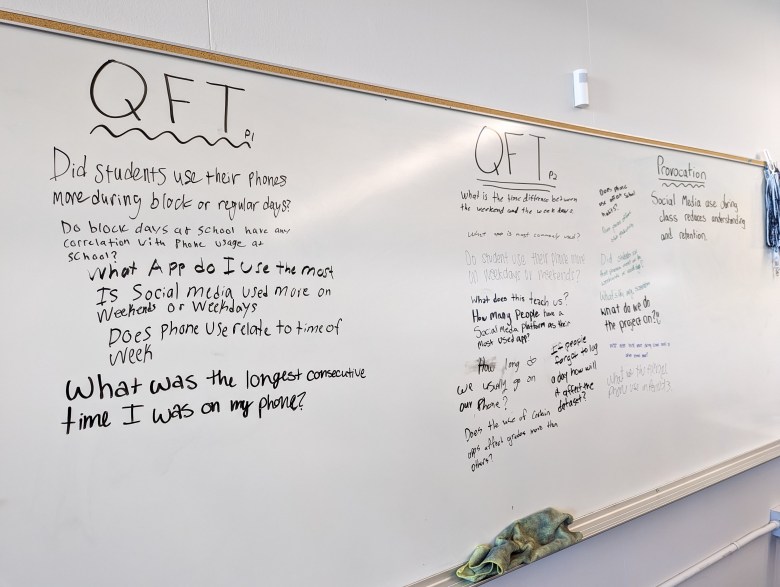 QFT
P1
Did students use their phones
more during block or regular days?
Do block days at school have any
correlation with Phone usage at
school?
What App do I use the most
Is Social media used more on
Weekends or Weekdays
Does phone use relate to time of
week
What was the longest consecutive
time I was on my phone?
QFT
P2
What is the time difference between
the weekend and the week days
What app is most commonly used?
Do student use their phone more
on weekdays or weekends?
What does this teach us?
How many people have a
Social Media platform as their
most used app?
How long do
we usually go on
our Phone?
If people
forgot to log
a day how will
it affect the
dataset?
Does the use of certain
apps affect grades more than
others?
Does phone
use affect school
What do we do
the project on?
Provocation
Social Media use during
class reduces understanding
and retention.